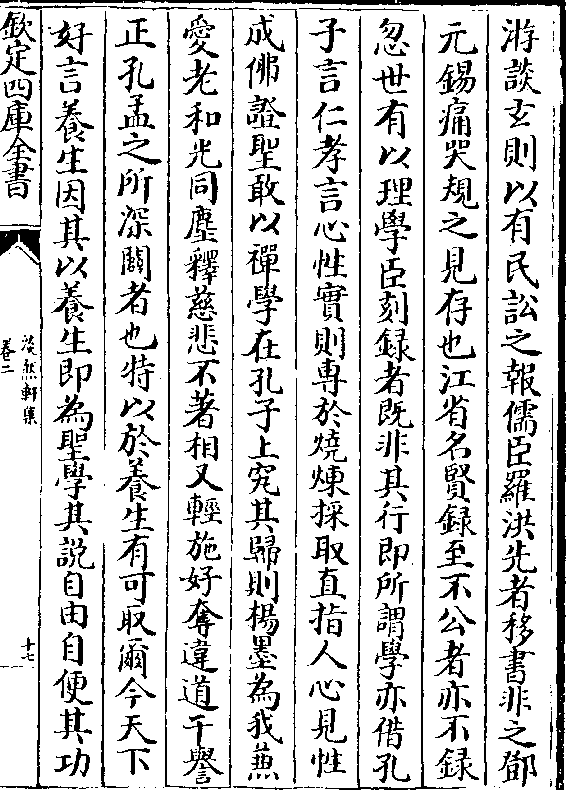 游談玄則以有民訟之報儒臣羅洪先者移書非之鄧
元錫痛哭規之見存也江省名賢錄至不公者亦不錄
忽世有以理學臣刻錄者既非其行即所謂學亦借孔
子言仁孝言心性實則專於燒煉採取直指人心見性
成佛證聖敢以禪學在孔子上究其歸則楊墨為我蕪
愛老和光同塵釋慈悲不著相又輕施好奪違道干譽
正孔孟之所深闢者也特以於養生有可取爾今天下
好言養生因其以養生即為聖學其說自由自便其功
欽定四庫全書
淡然軒集
卷二
十七